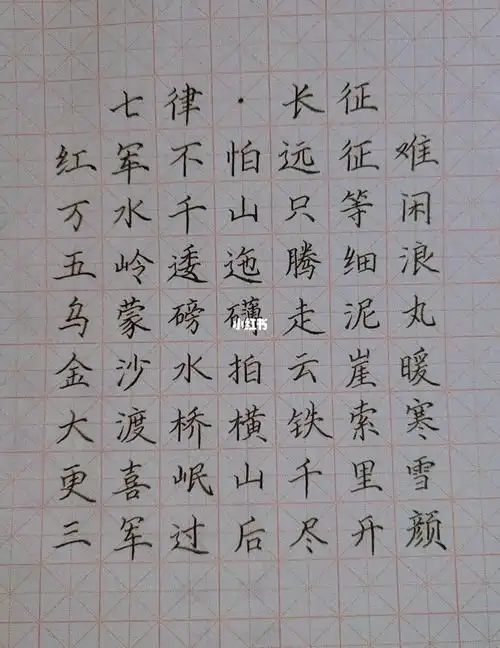 七律·长征
红军不怕远征难
万水千山只等闲
五岭逶迤腾细浪
乌蒙磅礴走泥丸
金沙水拍云崖暖
大渡桥横铁索寒
更喜岷山千里雪
三军过后尽开颜
小红书